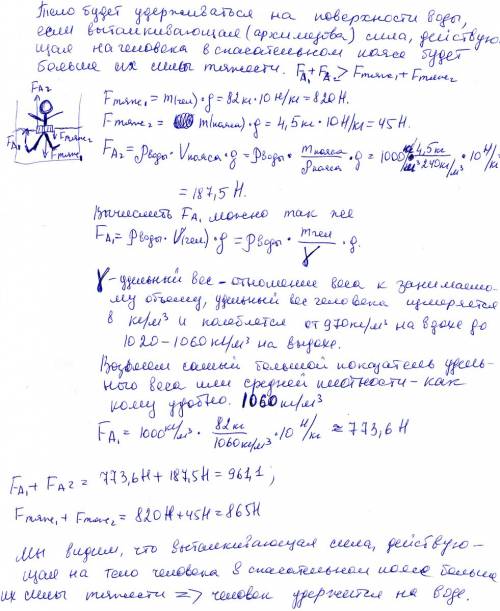 Тело будет удерживаться на поверхности воды,
если выталкивающая (архимедова) сила, действую-
щая на человека в спасательном поясе будет
больше их силы тяжести. FA1+FA2 > Fтяж1+Fтяж2
FA2
FA1
Fтяж2
Fтяж1
Fтяж1 = m(чел)·g = 82кг·10 Н/кг = 820Н.
Fтяж2 = m(пояса)·g = 4,5кг·10Н/кг = 45Н.
FA2 = ρводы·Vпояса·g = ρводы·mпояса/ρпояса·g = 1000 кг/м³·4,5кг/240кг/м³·10 Н/кг
= 187,5 Н.
Вычислить FA1 можно так же
FA1 = ρводы·V(чел)·g = ρводы·mчел/γ·g.
γ - удельный вес - отношение веса к занимаемо-
му объему, удельный вес человека измеряется
в кг/м³ и колеблется от 970кг/м³ на вдохе до
1020-1060 кг/м³ на выдохе.
Возьмем самый большой показатель удель-
ного веса или средней плотности - как
кому удобно. 1060кг/м³
FA1 = 1000кг/м³·82кг/1060кг/м³·10 Н/кг ≈ 773,6 Н
FA1 + FA2 = 773,6Н+187,5Н = 961,1;
Fтяж1 + Fтяж2 = 820Н+45Н = 865Н
Мы видим, что выталкивающая сила, действую-
щая на тело человека в спасательном поясе больше
их силы тяжести => человек удержится на воде.